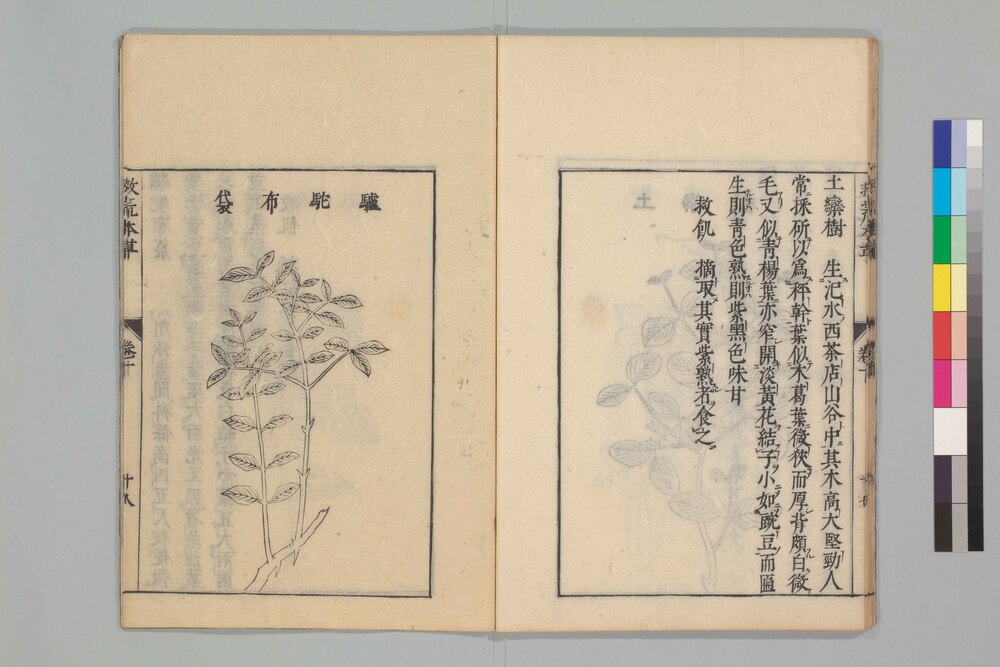 土欒樹　生汜水西茶店山谷中其木高大堅勁人
常採斫以爲秤幹葉似木葛葉微狹而厚背頗白微
毛又似青楊葉亦窄開淡黃花結子小如豌豆而匾
生則青色熟則紫黑色味甘
救飢　摘取其實紫熟者食之
驢駝布袋
救荒本草
卷十
十八